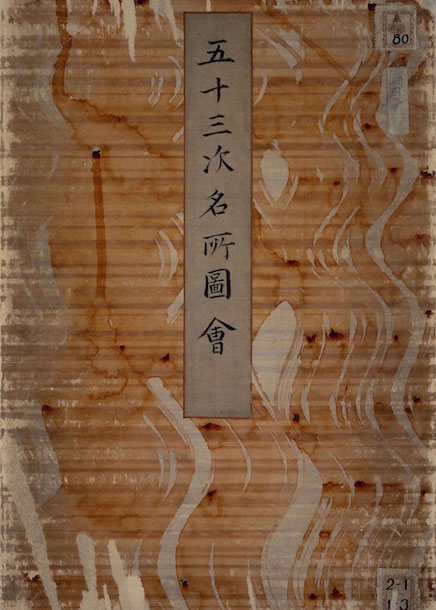 五十三次名所圖會
80
2-1
1-3